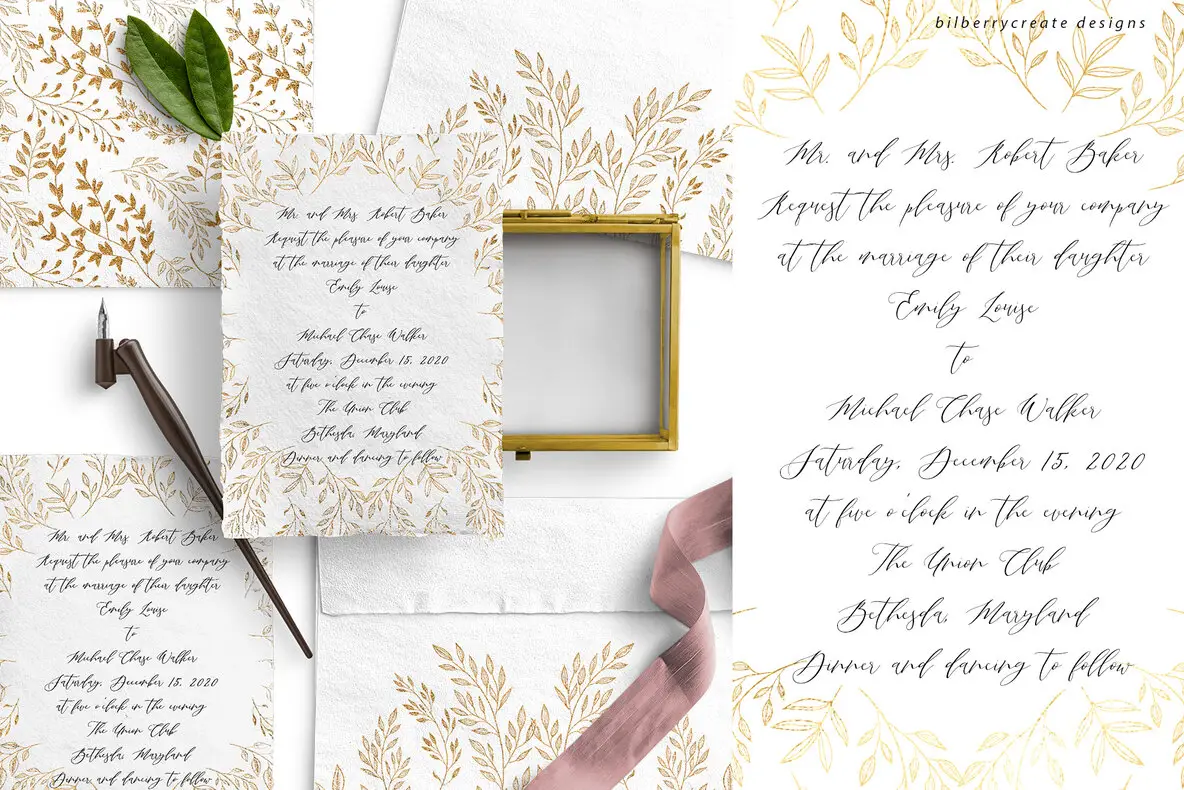 bilberrycreate designs
Mr. and Mrs. Robert Baker
Request the pleasure of your company
at the marriage of their daughter
Emily Louise
to
Michael Chase Walker
Saturday, December 15, 2020
at five o'clock in the evening
The Union Club
Bethesda, Maryland
Dinner and dancing to follow
Mr. and Mrs. Robert Baker
Request the pleasure of your company
at the marriage of their daughter
Emily Louise
to
Michael Chase Walker
Saturday, December 15, 2020
at five o'clock in the evening
The Union Club
Bethesda, Maryland
Dinner and dancing to follow
Mr. and Mrs. Robert Baker
Request the pleasure of your company
at the marriage of their daughter
Emily Louise
to
Michael Chase Walker
Saturday, December 15, 2020
at five o'clock in the evening
The Union Club
Bethesda, Maryland
Dinner and dancing to follow